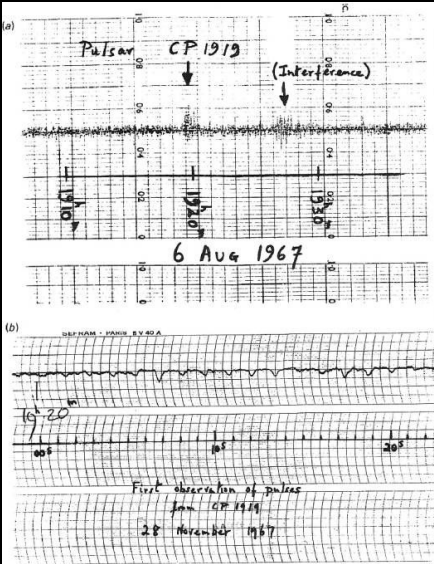 (a)
Pulsar CP 1919
(Interference)
19h10m 19h20m 19h30m
6 AUG 1967
(b)
SEFRAM - PARIS BV 40 A
19h 20m
00s 10s 20s
First observation of pulses
from CP 1919
28 November 1967